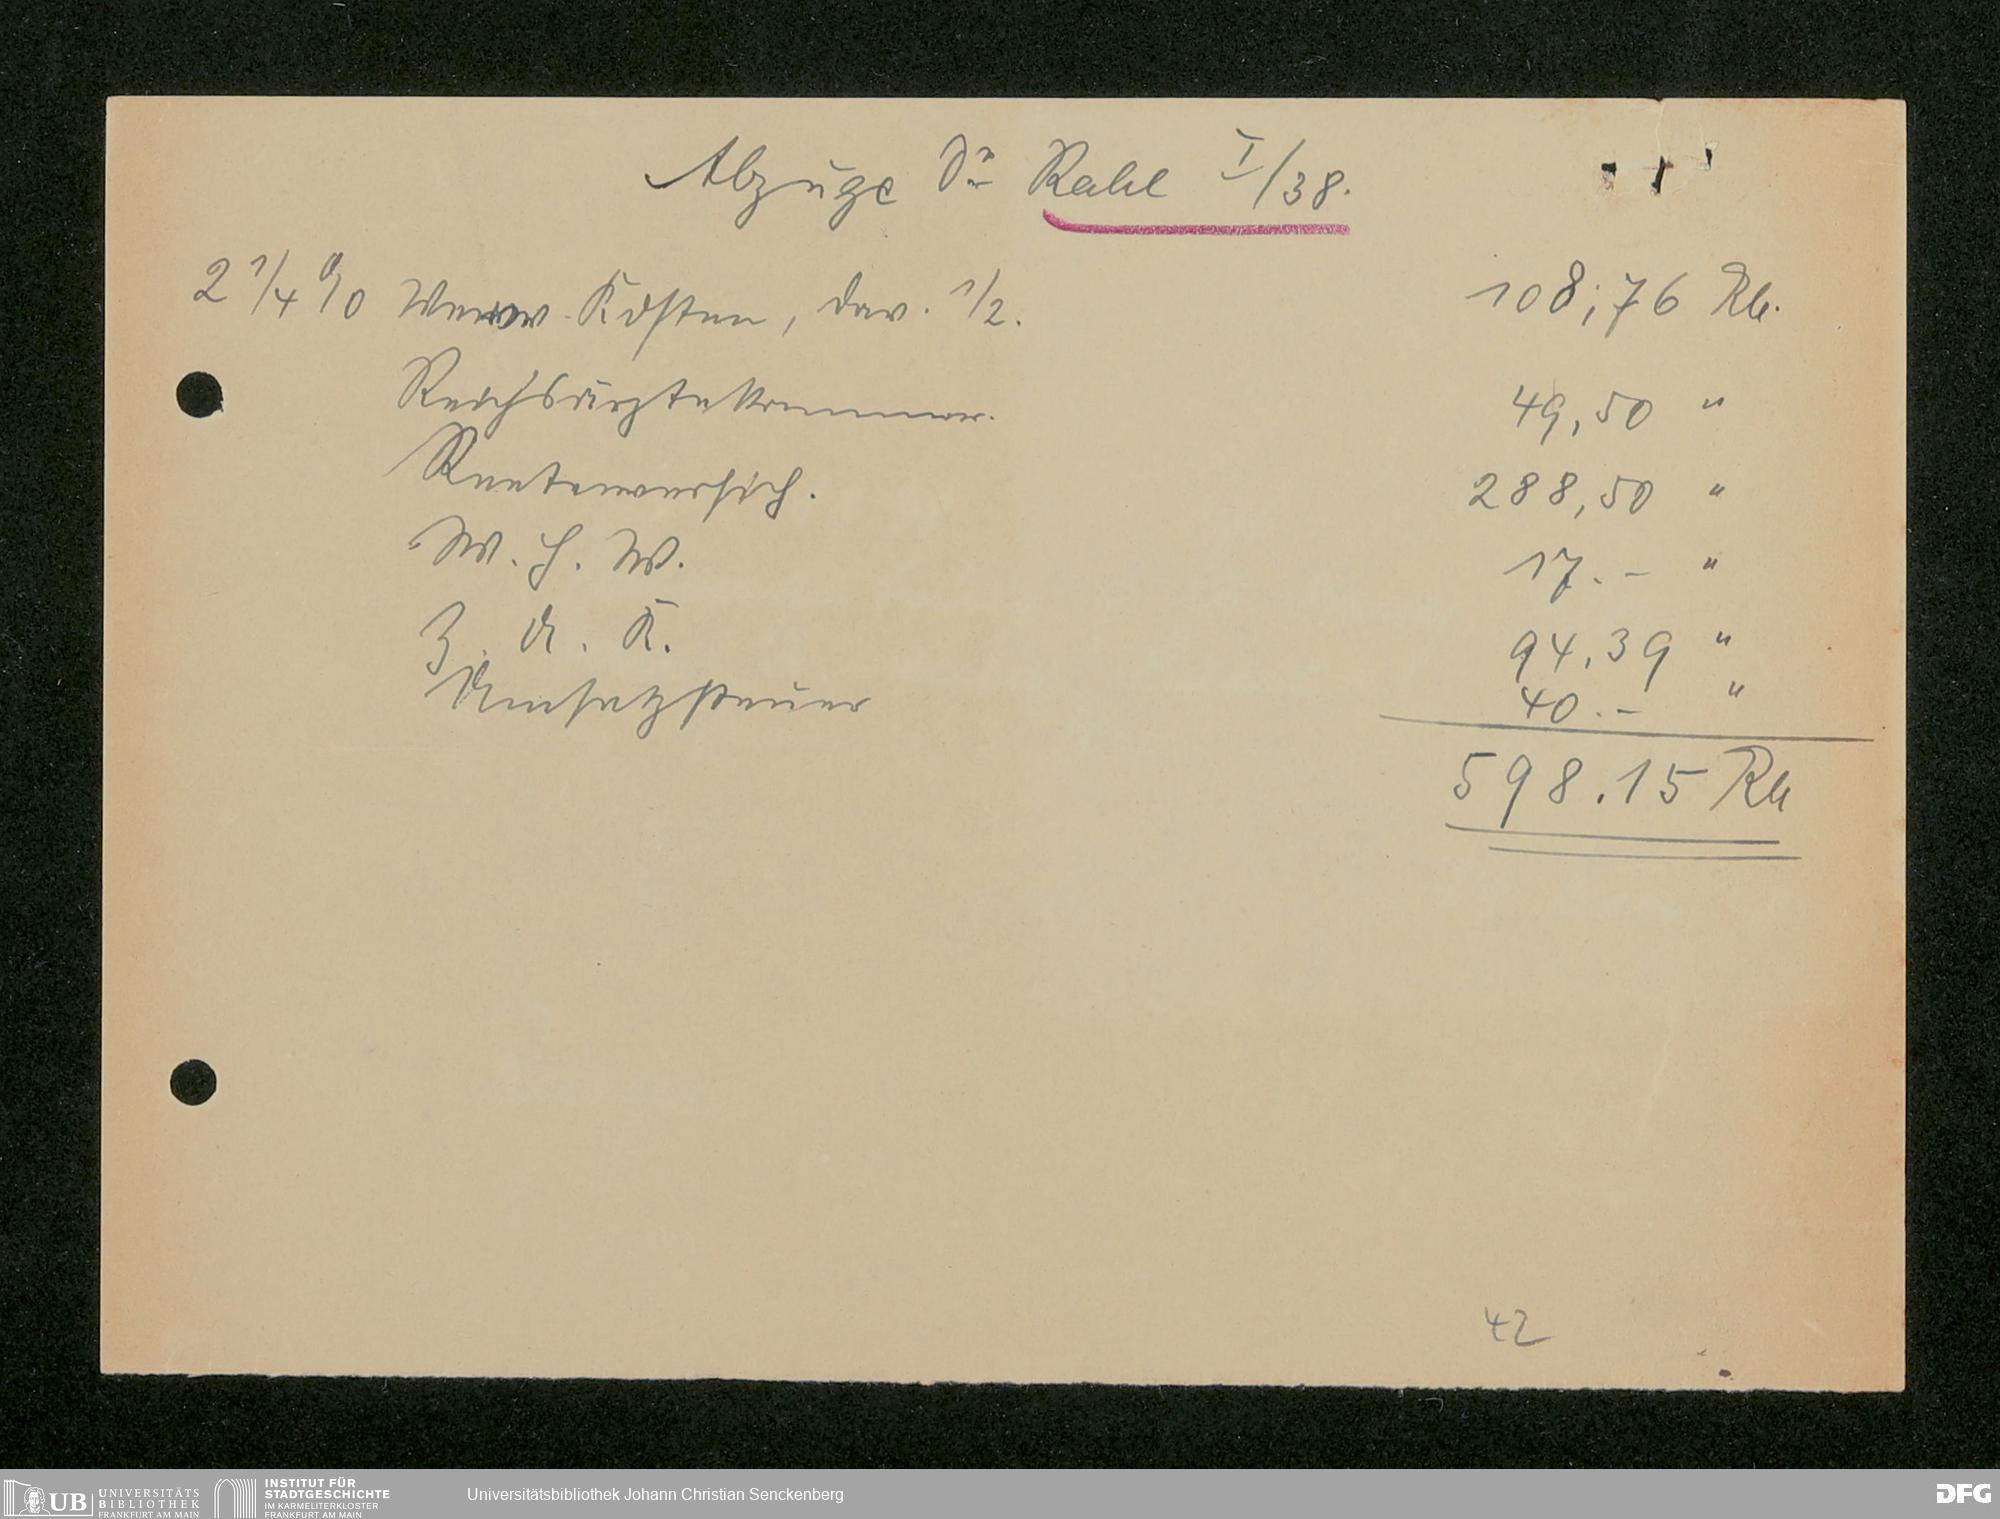 Abzüge Dr Rahl I/38.
2 1/4 % Verw. Kosten, dav. 1/2. 108,76 RM.
Reichsärztekammer. 49,50 "
Rentenversich. 288,50 "
W. H. W. 17.- "
Z. d. K. 94,39 "
Umsatzsteuer 40.- "
598.15 RM
42
UB UNIVERSITÄTS BIBLIOTHEK FRANKFURT AM MAIN
INSTITUT FÜR STADTGESCHICHTE IM KARMELITERKLOSTER FRANKFURT AM MAIN
Universitätsbibliothek Johann Christian Senckenberg
DFG